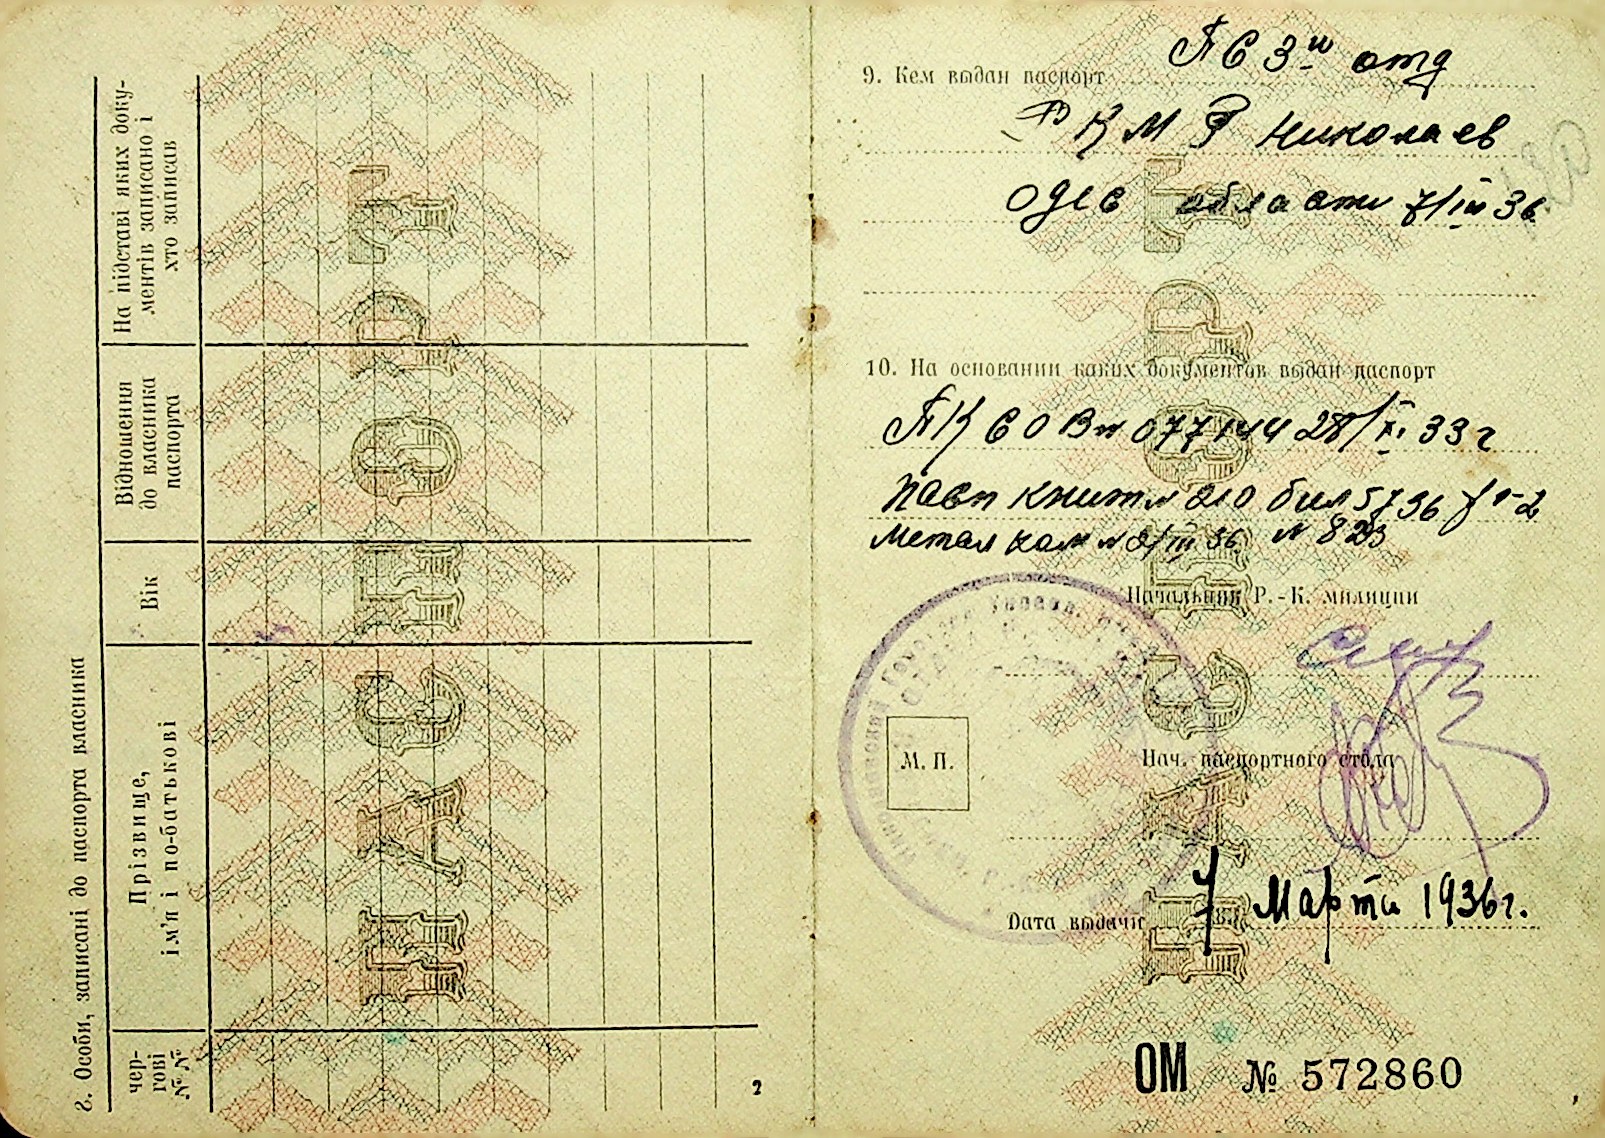 8. Особи, записані до паспорта власника
чер-
гові
№№
Прізвище,
ім'я і по-батькові
Вік
Відношення
до власника
паспорта
На підставі яких доку-
ментів записано і
хто записав
ПАСПОРТ
2
9. Кем выдан паспорт ПС 3м отд
РКМ г Николаев
Одес области 7/III 36
10. На основании каких документов выдан паспорт
077144 28/XI 33 г
книж 210 бил 5736
Метал 2/III 36 № 823
Начальник Р.-К. милиции
М. П.
Нач. паспортного стола
Дата выдачи 7 Марта 1936 г.
ПАСПОРТ
ОМ № 572860